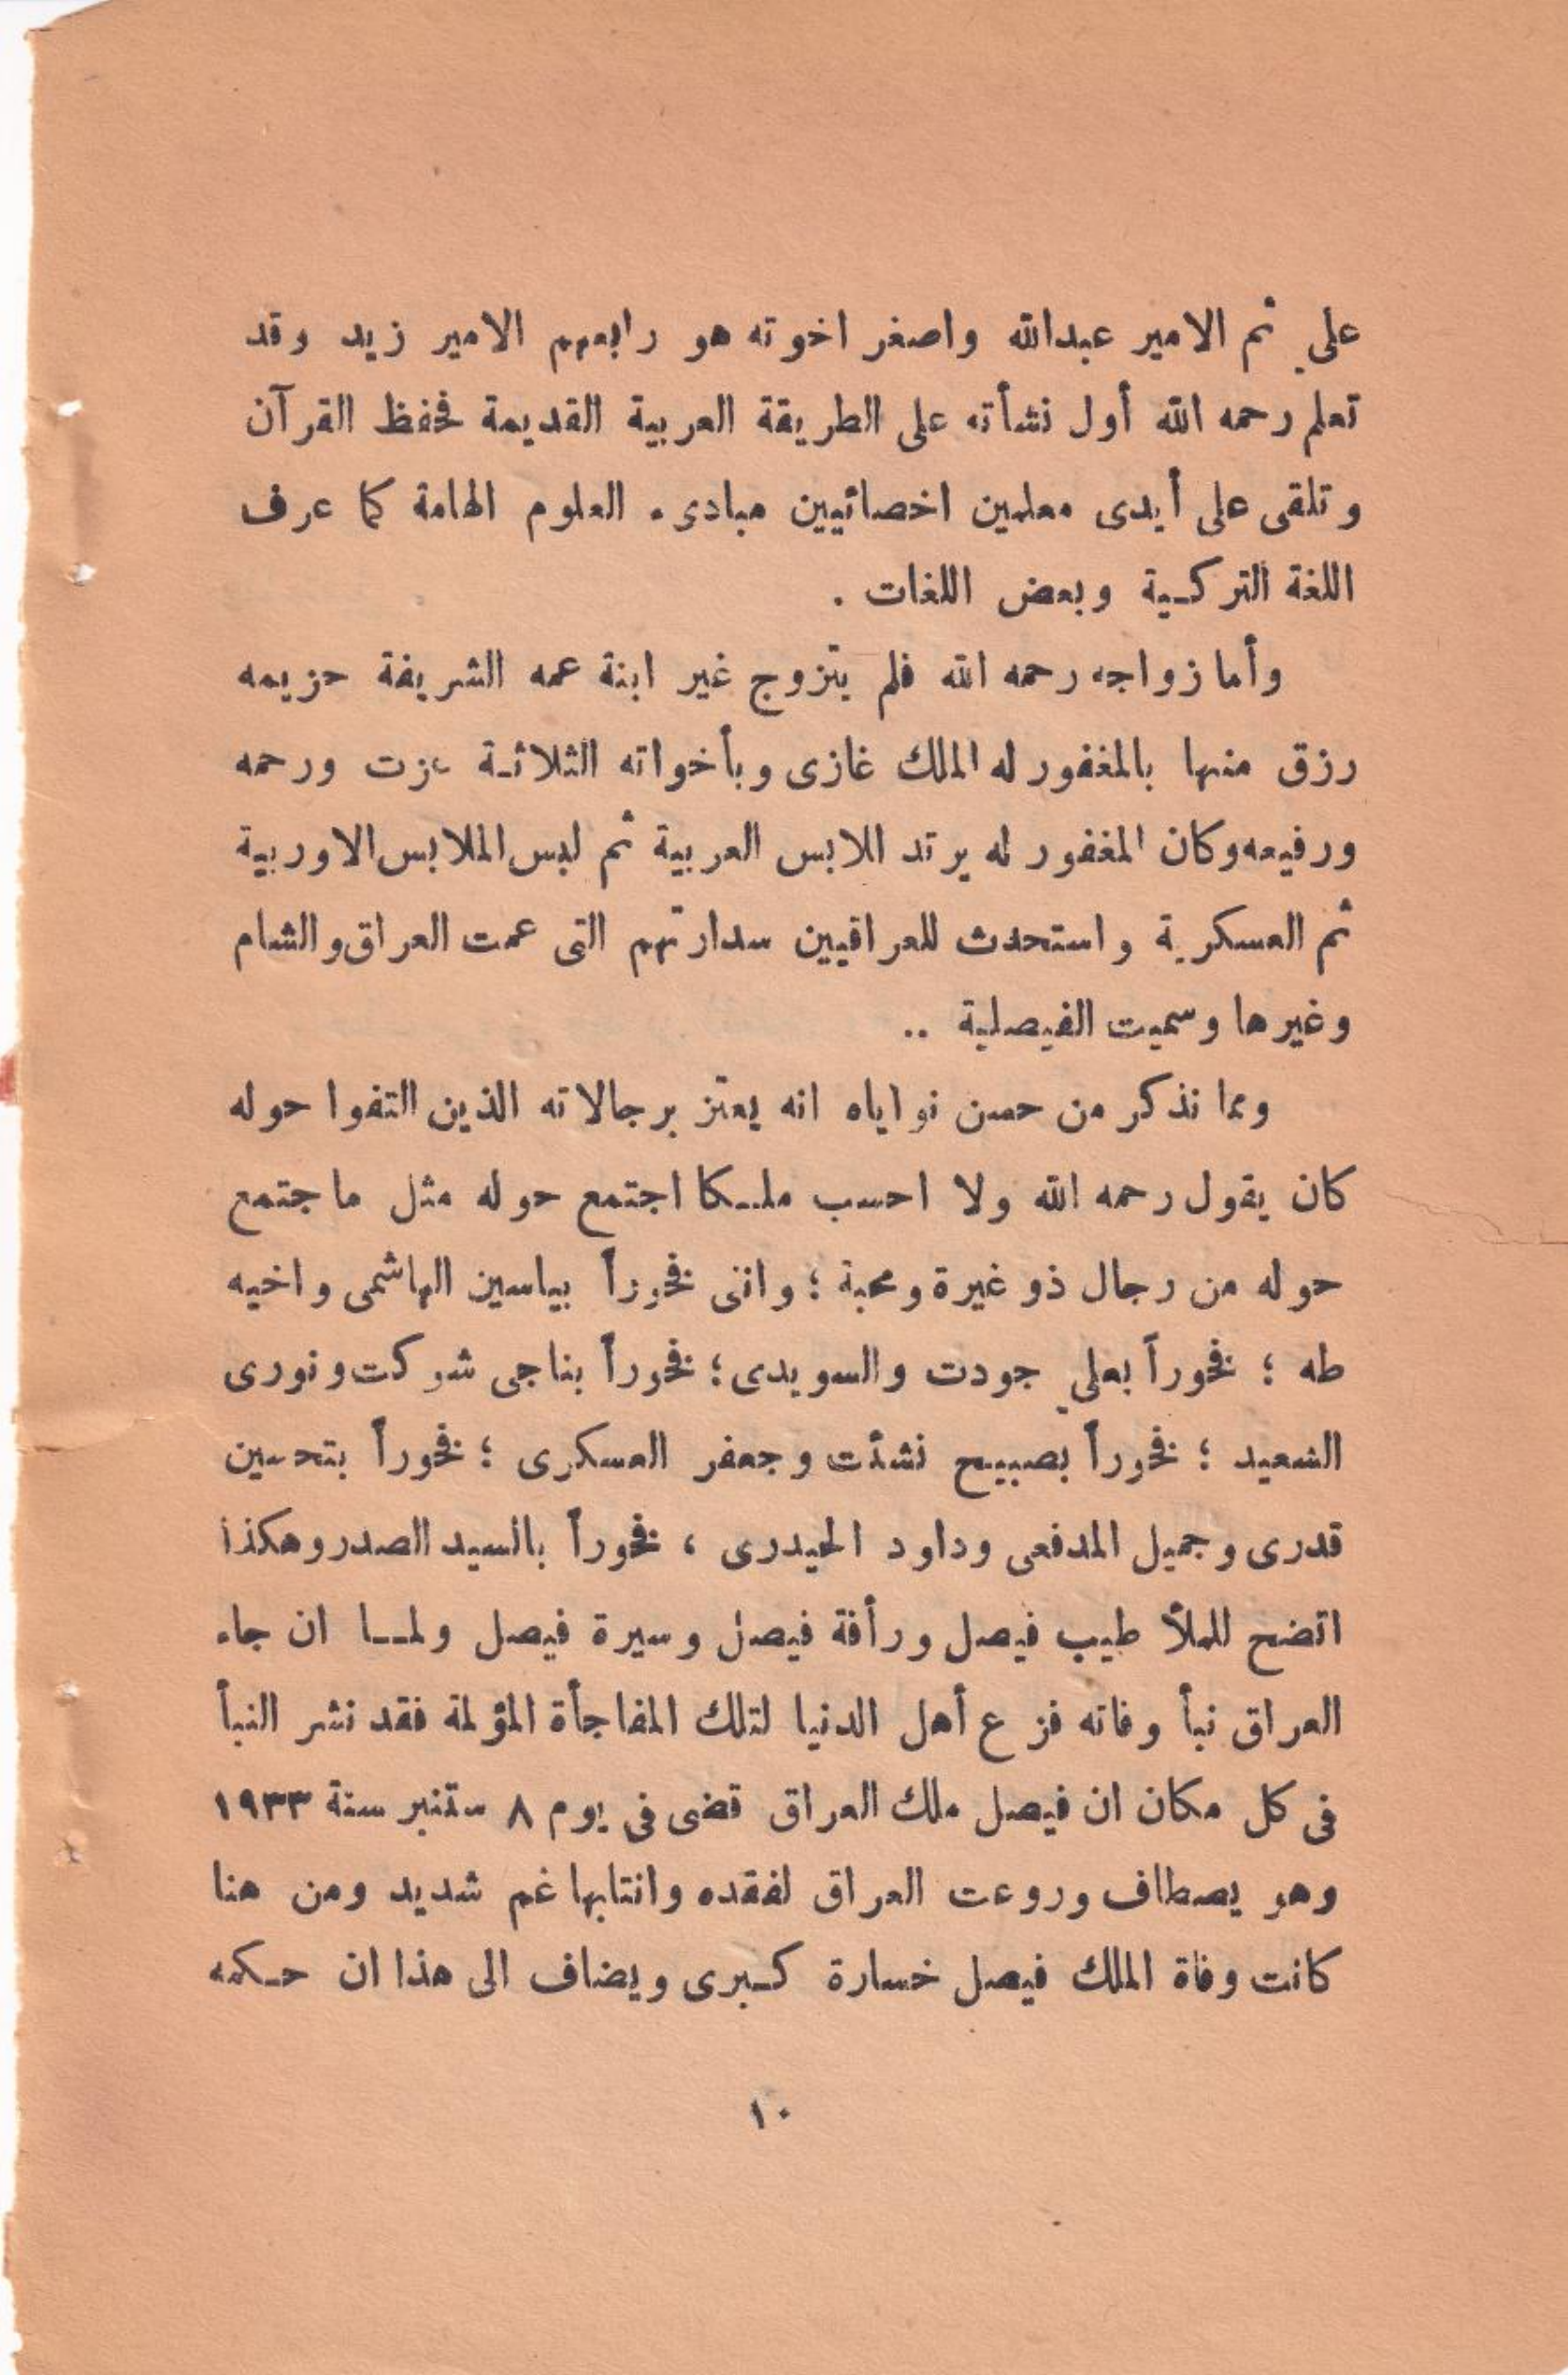 علي ثم الامير عبدالله واصغر اخوته هو رابعهم الامير زيد وقد
تعلم رحمه الله أول نشأته على الطريقة العربية القديمة فحفظ القرآن
وتلقى على أيدى معلمين اخصائيين مبادىء العلوم الهامة كما عرف
اللغة التركية وبعض اللغات .
وأما زواجه رحمه الله فلم يتزوج غير ابنة عمه الشريفة حزيمه
رزق منها بالمغفور له الملك غازى وبأخواته الثلاثة عزت ورحمه
ورفيعه وكان المغفور له يرتد الملابس العربية ثم لبس الملابس الاوربية
ثم العسكرية واستحدث للعراقيين سدارتهم التى عمت العراق والشام
وغيرها وسميت الفيصلية ..
ومما نذكر من حسن نواياه انه يعتز برجالاته الذين التفوا حوله
كان يقول رحمه الله ولا احسب ملكا اجتمع حوله مثل ماجتمع
حوله من رجال ذو غيرة ومحبة ؛ واننى فخوراً بياسين الهاشمى واخيه
طه ؛ فخوراً بعلي جودت والسويدى ؛ فخوراً بناجى شوكت ونورى
السعيد ؛ فخوراً بصبيح نشئت وجعفر العسكرى ؛ فخوراً بتحسين
قدرى وجميل المدفعى وداود الحيدرى ، فخوراً بالسيد الصدر وهكذا
اتضح للملأ طيب فيصل ورأفة فيصل وسيرة فيصل ولمـا ان جاء
العراق نبأ وفاته فزع أهل الدنيا لتلك المفاجأة المؤلمة فقد نشر النبأ
فى كل مكان ان فيصل ملك العراق قضى فى يوم ٨ ستنبر سنة ١٩٣٣
وهو يصطاف وروعت العراق لفقده وانتابها غم شديد ومن هنا
كانت وفاة الملك فيصل خسارة كبرى ويضاف الى هذا ان حكمه
١٠